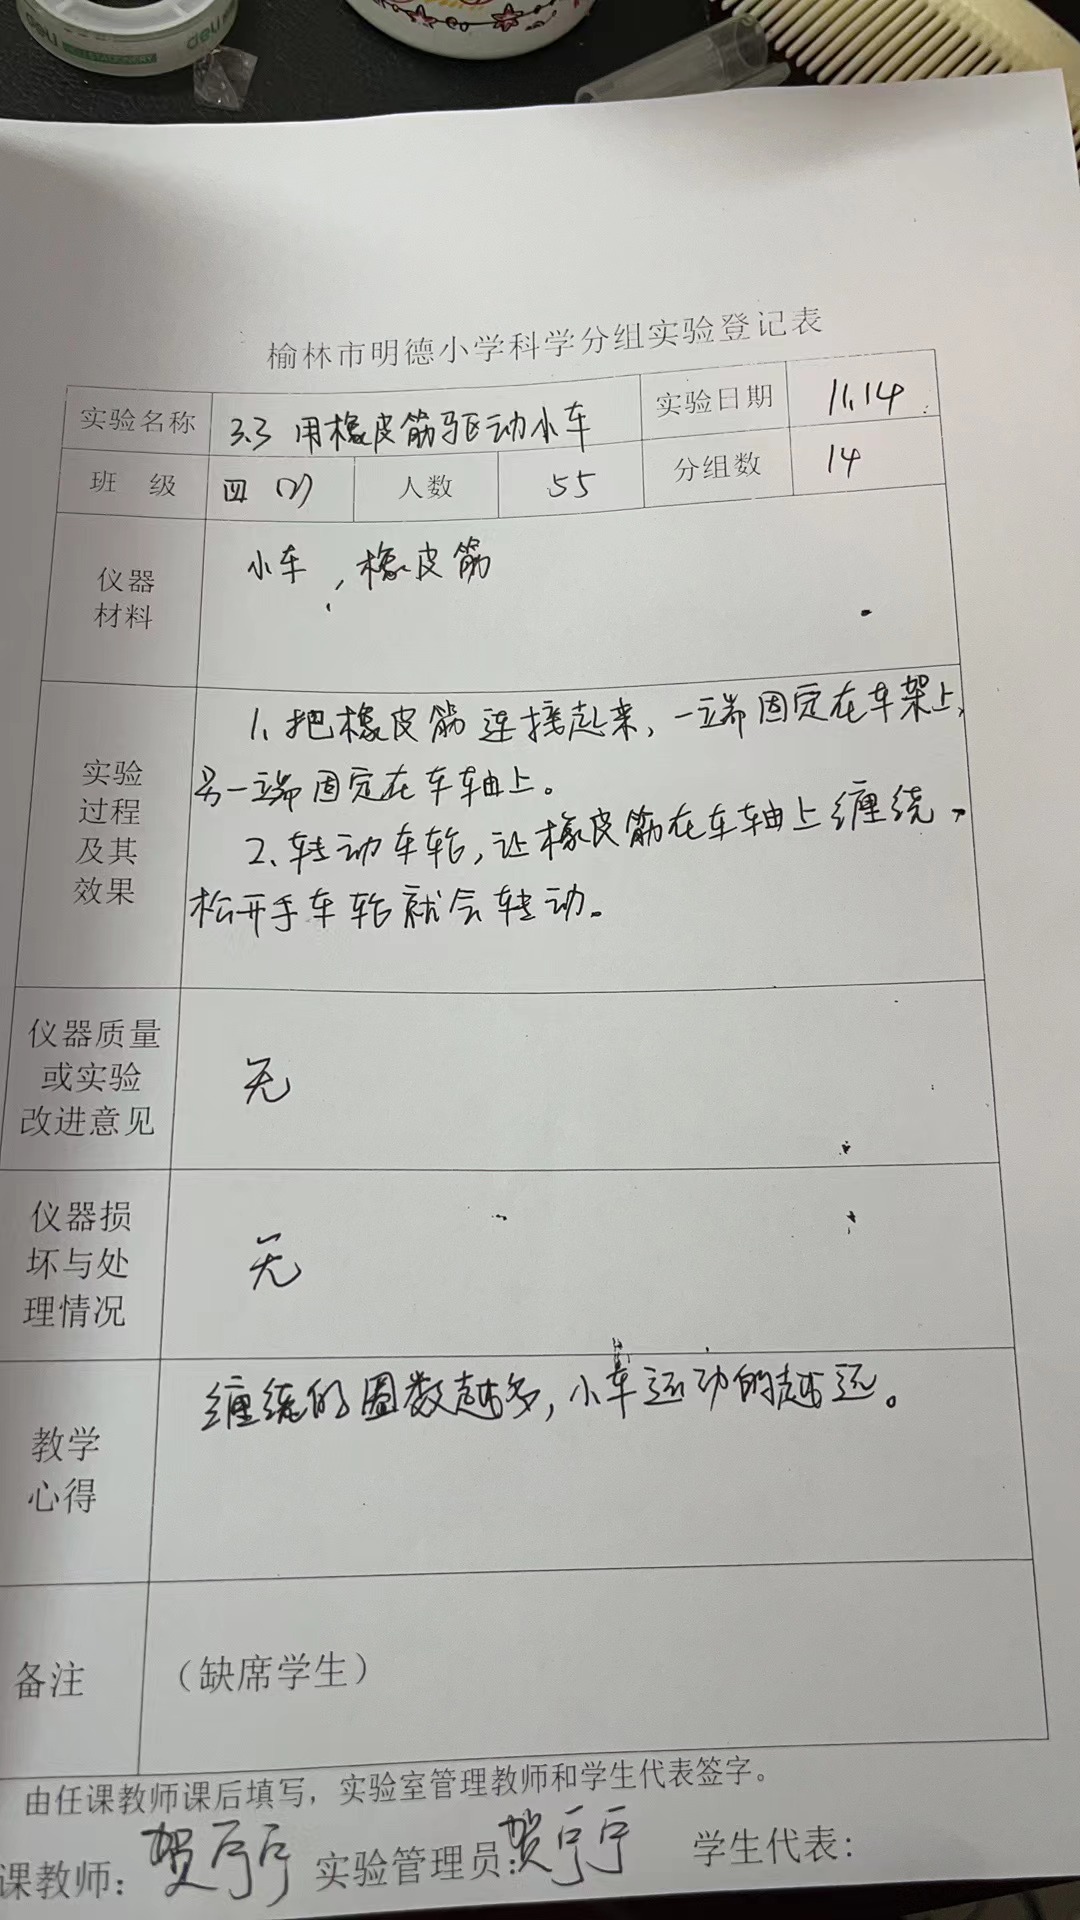 deli
STATIONERY
deli
榆林市明德小学科学分组实验登记表
实验名称 3.3 用橡皮筋驱动小车 实验日期 11.14
班 级 四(2) 人数 55 分组数 14
仪器
材料
小车,橡皮筋
实验
过程
及其
效果
1、把橡皮筋连接起来,一端固定在车架上,
另一端固定在车轴上。
2、转动车轮,让橡皮筋在车轴上缠绕,
松开手车轮就会转动。
仪器质量
或实验
改进意见
无
仪器损
坏与处
理情况
无
教学
心得
缠绕的圈数越多,小车运动的越远。
备注 (缺席学生)
由任课教师课后填写,实验室管理教师和学生代表签字。
课教师: 贺 实验管理员: 贺 学生代表: